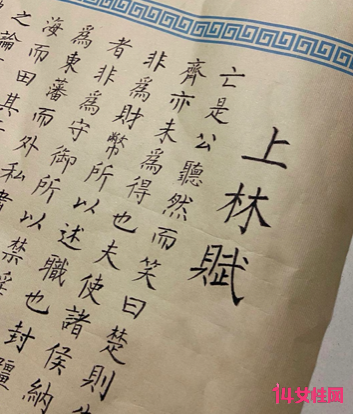 上林賦
亡是公聽然而笑曰楚則
齊亦未爲得也夫使諸侯納
非爲財幣所以述職也封疆
者非爲守御所以禁淫
爲東藩而外私肅
海而田其
之論
14女性网